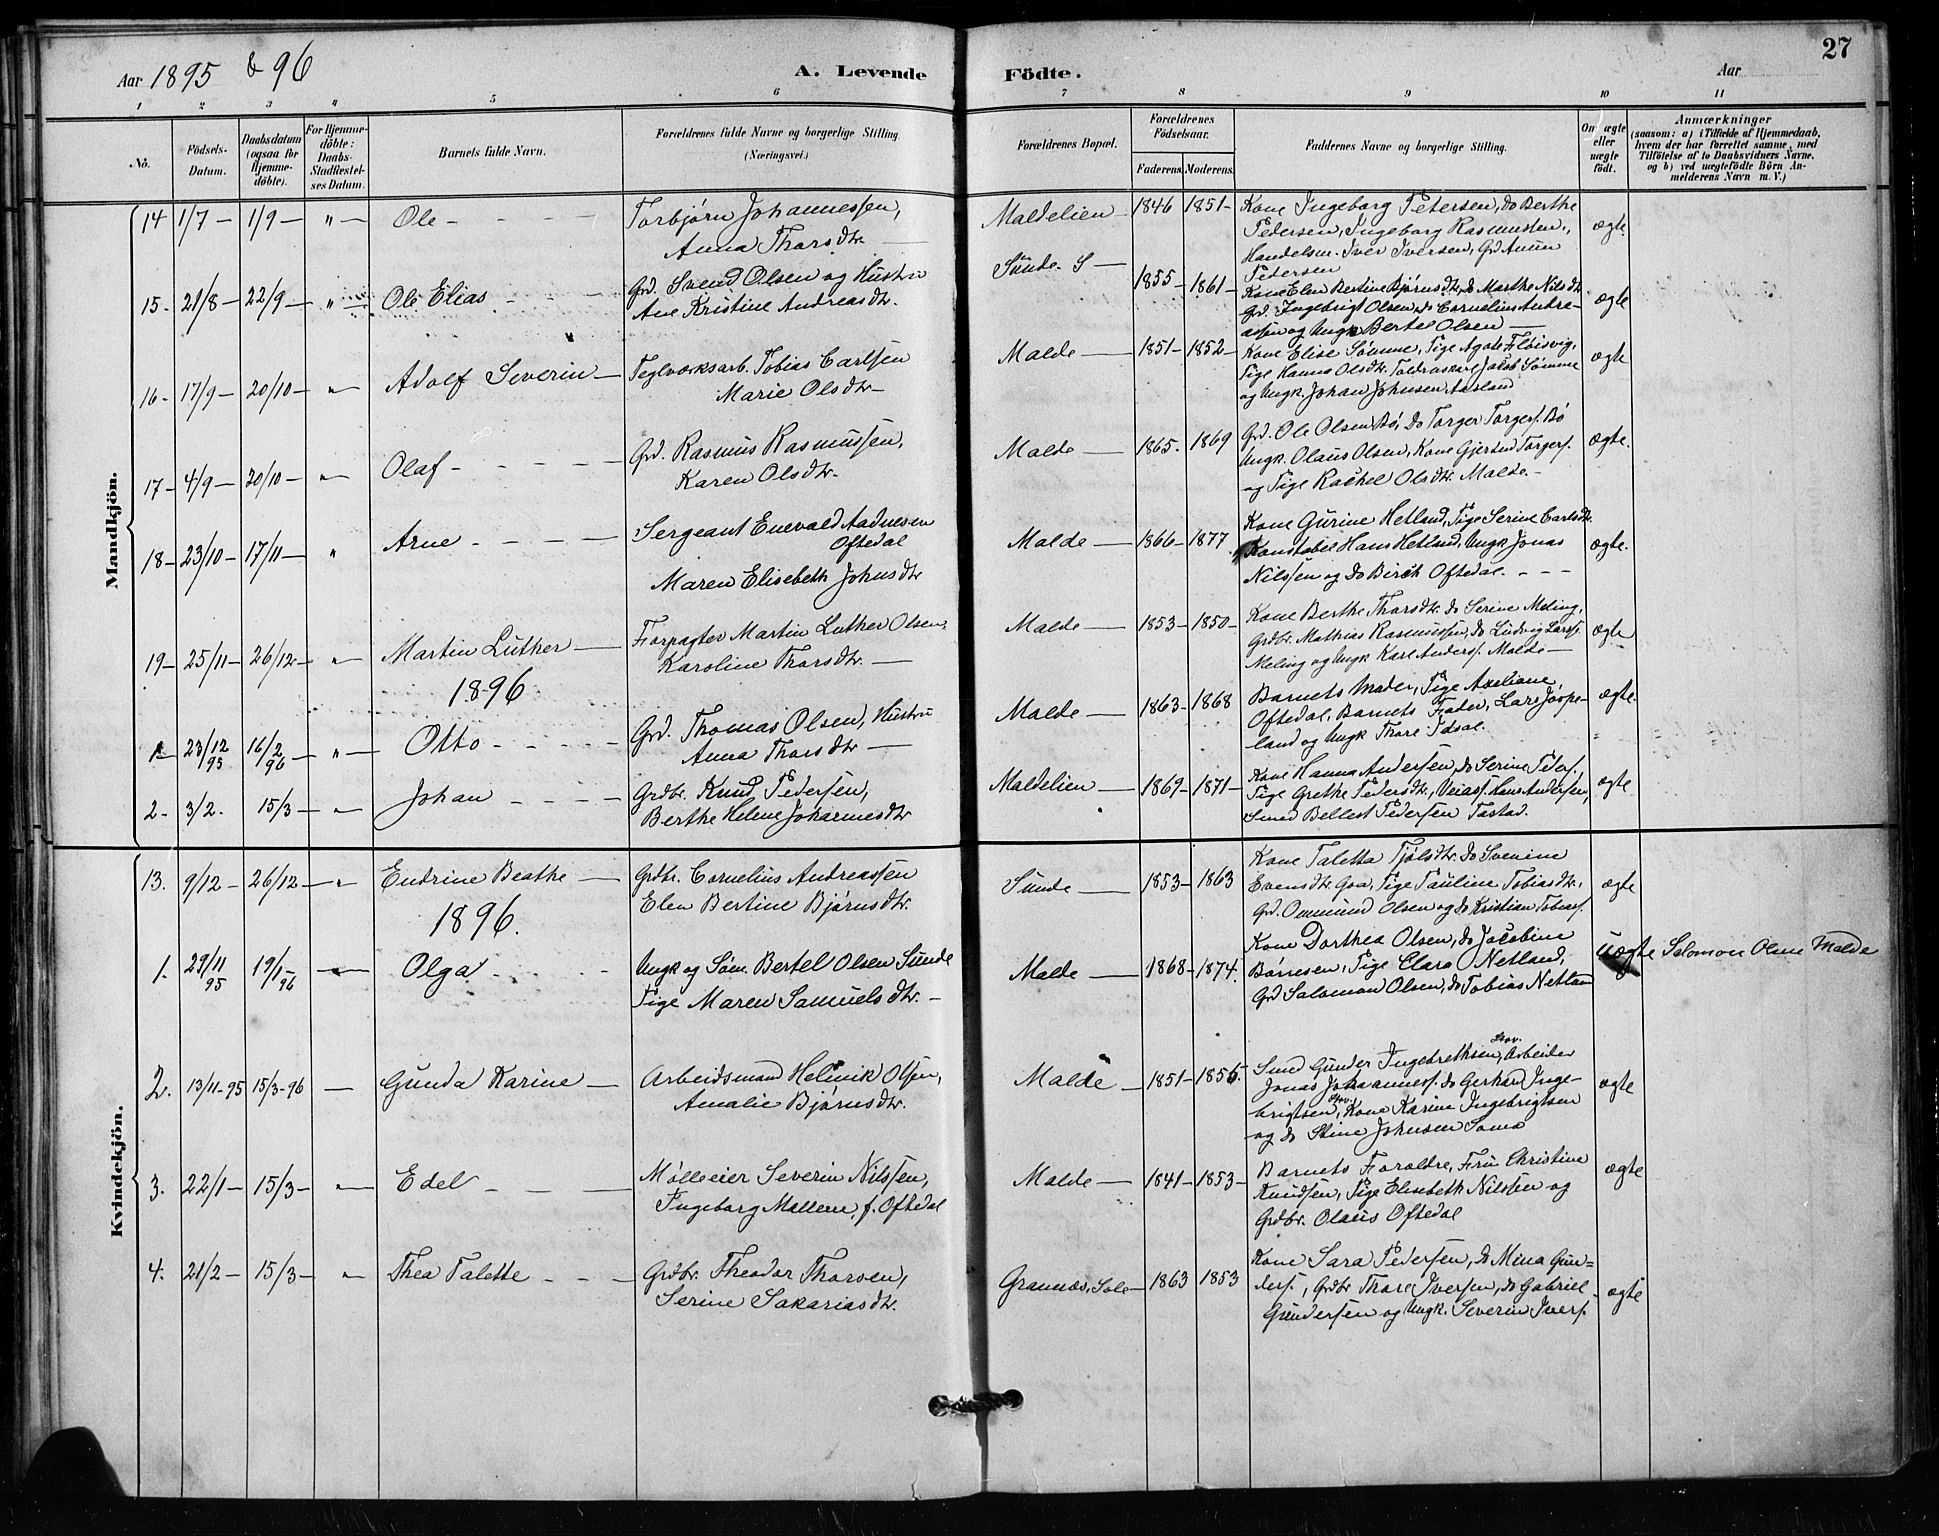 27
Aar 1895 & 96
A. Levende Födte.
Aar
1 2 3 4 5 6 7 8 9 10 11
No.
Födsels-Datum.
Daabsdatum (ogsaa for Hjemme-döbte).
For Hjemme-döbte: Daabs-Stadfæstel-ses Datum.
Barnets fulde Navn.
Forældrenes fulde Navne og borgerlige Stilling (Næringsvei.)
Forældrenes Bopæl.
Forældrenes Födselsaar.
Faderens. Moderens.
Faddernes Navne og borgerlige Stilling.
Om ægte eller uægte født.
Anmærkninger
(saasom: a) i Tilfælde af Hjemmedaab,
hvem der har forrettet samme, med
Tilföielse af to Daabsvidners Navne,
og b) ved uægtefödte Börn An-
melderens Navn m. V.)
Mandkjön.
14 1/7 — 1/9 — " — Ole - - - - Torbjørn Johannessen,
Anna Thorsdtr. —
Maldelien — 1846 1851 — Kone Ingeborg Petersen, do Berthe
Pedersen, Ingeborg Rasmussen,
Handelsm. Iver Iversen, Grd Anun
Pedersen
ægte.
15 - 21/8 — 22/9 — " — Ole Elias - - - - Grd. Svend Olsen og Hustru
Ane Kristine Andreasdtr.
Sunde. S — 1855 — 1861 — Kone Elen Bertine Bjørnsdtr, do Marthe Nilsdtr
Grd. Ingebrigt Olsen, do Cornelius Andre-
assen og Ungk Bertel Olsen —
ægte
16 - 17/9 — 20/10 — " — Adolf Severin — Teglværksarb. Tobias Carlsen
Marie Olsdtr —
Malde — 1851 — 1852 — Kone Elise Sømme, Pige Agate Fløisvig,
Pige Hanna Olsdtr. Toldroskarl Jacob Sømme
og Ungk. Johan Johnsen Aasland
ægte
17 - 4/9 — 20/10 — " — Olaf - - - - - Grd. Rasmus Rasmussen,
Karen Olsdtr.
Malde — 1865. 1869 Grd. Ole Olsen Bø, do Torger Torgers. Bø
Ungk. Olaus Olsen, Kone Gjertin Torgers.
og Pige Rachel Olsdtr. Malde. -
ægte.
18 - 23/10 — 17/11 — " Arne - - - - Sergeant Enevald Aadnesen
Oftedal
Maren Elisebeth Johnsdtr
Malde — 1866 — 1877 Kone Gurine Hetland, Pige Serine Carlsdtr.
Konstabel Hans Hetland, Ungk Jonas
Nilssen og do Birch Oftedal. - - -
ægte.
19 - 25/11 — 26/12 — " — Martin Luther — Forpagter Martin Luther Olsen,
Karoline Thorsdtr. —
Malde — 1853 — 1850 — Kone Berthe Thorsdtr. do Serine Meling,
Grdbr. Mathias Rasmussen, do Ludvig Larss.
Meling og Ungk Karl Anders. Malde —
ægte
1896
1 - 23/12 95 16/2 96 " — Otto - - - - Grd. Thomas Olsen, Hustru
Anna Thorsdtr —
Malde — 1863 — 1868 Barnets Moder, Pige Axeliane
Oftedal, Barnets Fader, Lars Jøspe-
land og Ungk Thore Idsal.
ægte.
2 - 3/2. 15/3 — " Johan - - - - Grdbr. Knud Pedersen,
Berthe Helene Johannesdtr
Maldelien — 1869 — 1871 — Kone Hanna Andersen, do Serine Peders.
Pige Grethe Pedersdtr, Veiass. Hans Andersen,
Smed Bellest Pedersen Tastad.
ægte
Kvindekjön.
13. 9/12 — 26/12 — " Endrine Beathe — Grdbr. Cornelius Andreassen
Elen Bertine Bjørnsdtr.
Sunde — 1853 — 1863 Kone Taletta Tjølsdtr. do Svenine
Evensdtr Goa, Pige Pauline Tobiasdtr.
Grd. Ommund Olsen og do Kristian Tobiass.
ægte
1896.
1. 29/11 95 19/1 96 — Olga - - - - Ungk og Søm. Bertel Olsen Sunde
Pige Maren Samuelsdtr. —
Malde — 1868 — 1874. Kone Dorthea Olsen, do Jacobine
Børresen, Pige Clara Netland,
Grd Salomon Olsen, do Tobias Netland
uægte Salomon Olsen Malde
2. 13/11-95 15/3-96 — Gunda Karine — Arbeidsmand Helmik Olsen,
Amalie Bjørnsdtr.
Malde — 1851 — 1856. Smed Gunder Ingebrethsen, Stav. Arbeider
Jonas Johanness. do Gerhard Inge-
brigtsen, Stav. Kone Karine Ingebrigtsen
og do Stine Johnsen Soma
ægte
3. 22/1 — 15/3 — " Edel - - - Mølleeier Severin Nilssen,
Ingeborg Mallene, f. Oftedal
Malde — 1841 — 1853 — Barnets Forældre, Fru Christine
Knudsen, Pige Elisebeth Nilssen og
Grdbr. Olaus Oftedal
ægte
4. 21/2 — 15/3 — " Thea Talette - - - Grdbr. Theodor Thorsen,
Serine Sakariasdtr.
Grannæs, Sole — 1863 1853 Kone Sara Pedersen, do Mina Gun-
ders., Grdbr Thore Iversen, do Gabriel
Gundersen og Ungk. Severin Ivers.
ægte